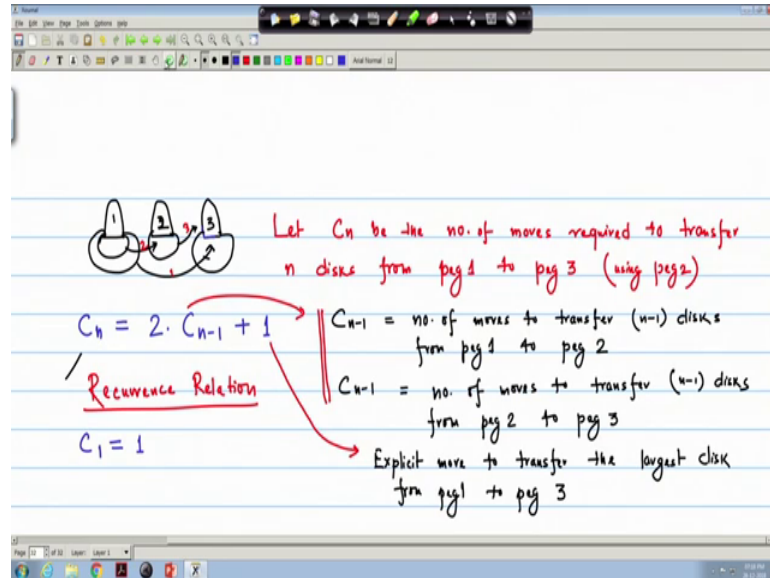 Xournal
File Edit View Page Tools Options Help
Arial Normal 12
1 2 3
2 3
1
Let Cn be the no. of moves required to transfer
n disks from peg 1 to peg 3 (using peg 2)
Cn = 2. Cn-1 + 1
Cn-1 = no. of moves to transfer (n-1) disks
from peg 1 to peg 2
Recurrence Relation
Cn-1 = no. of moves to transfer (n-1) disks
from peg 2 to peg 3
C1 = 1
Explicit move to transfer the largest disk
from peg1 to peg 3
Page 32 of 32 Layer: Layer 1